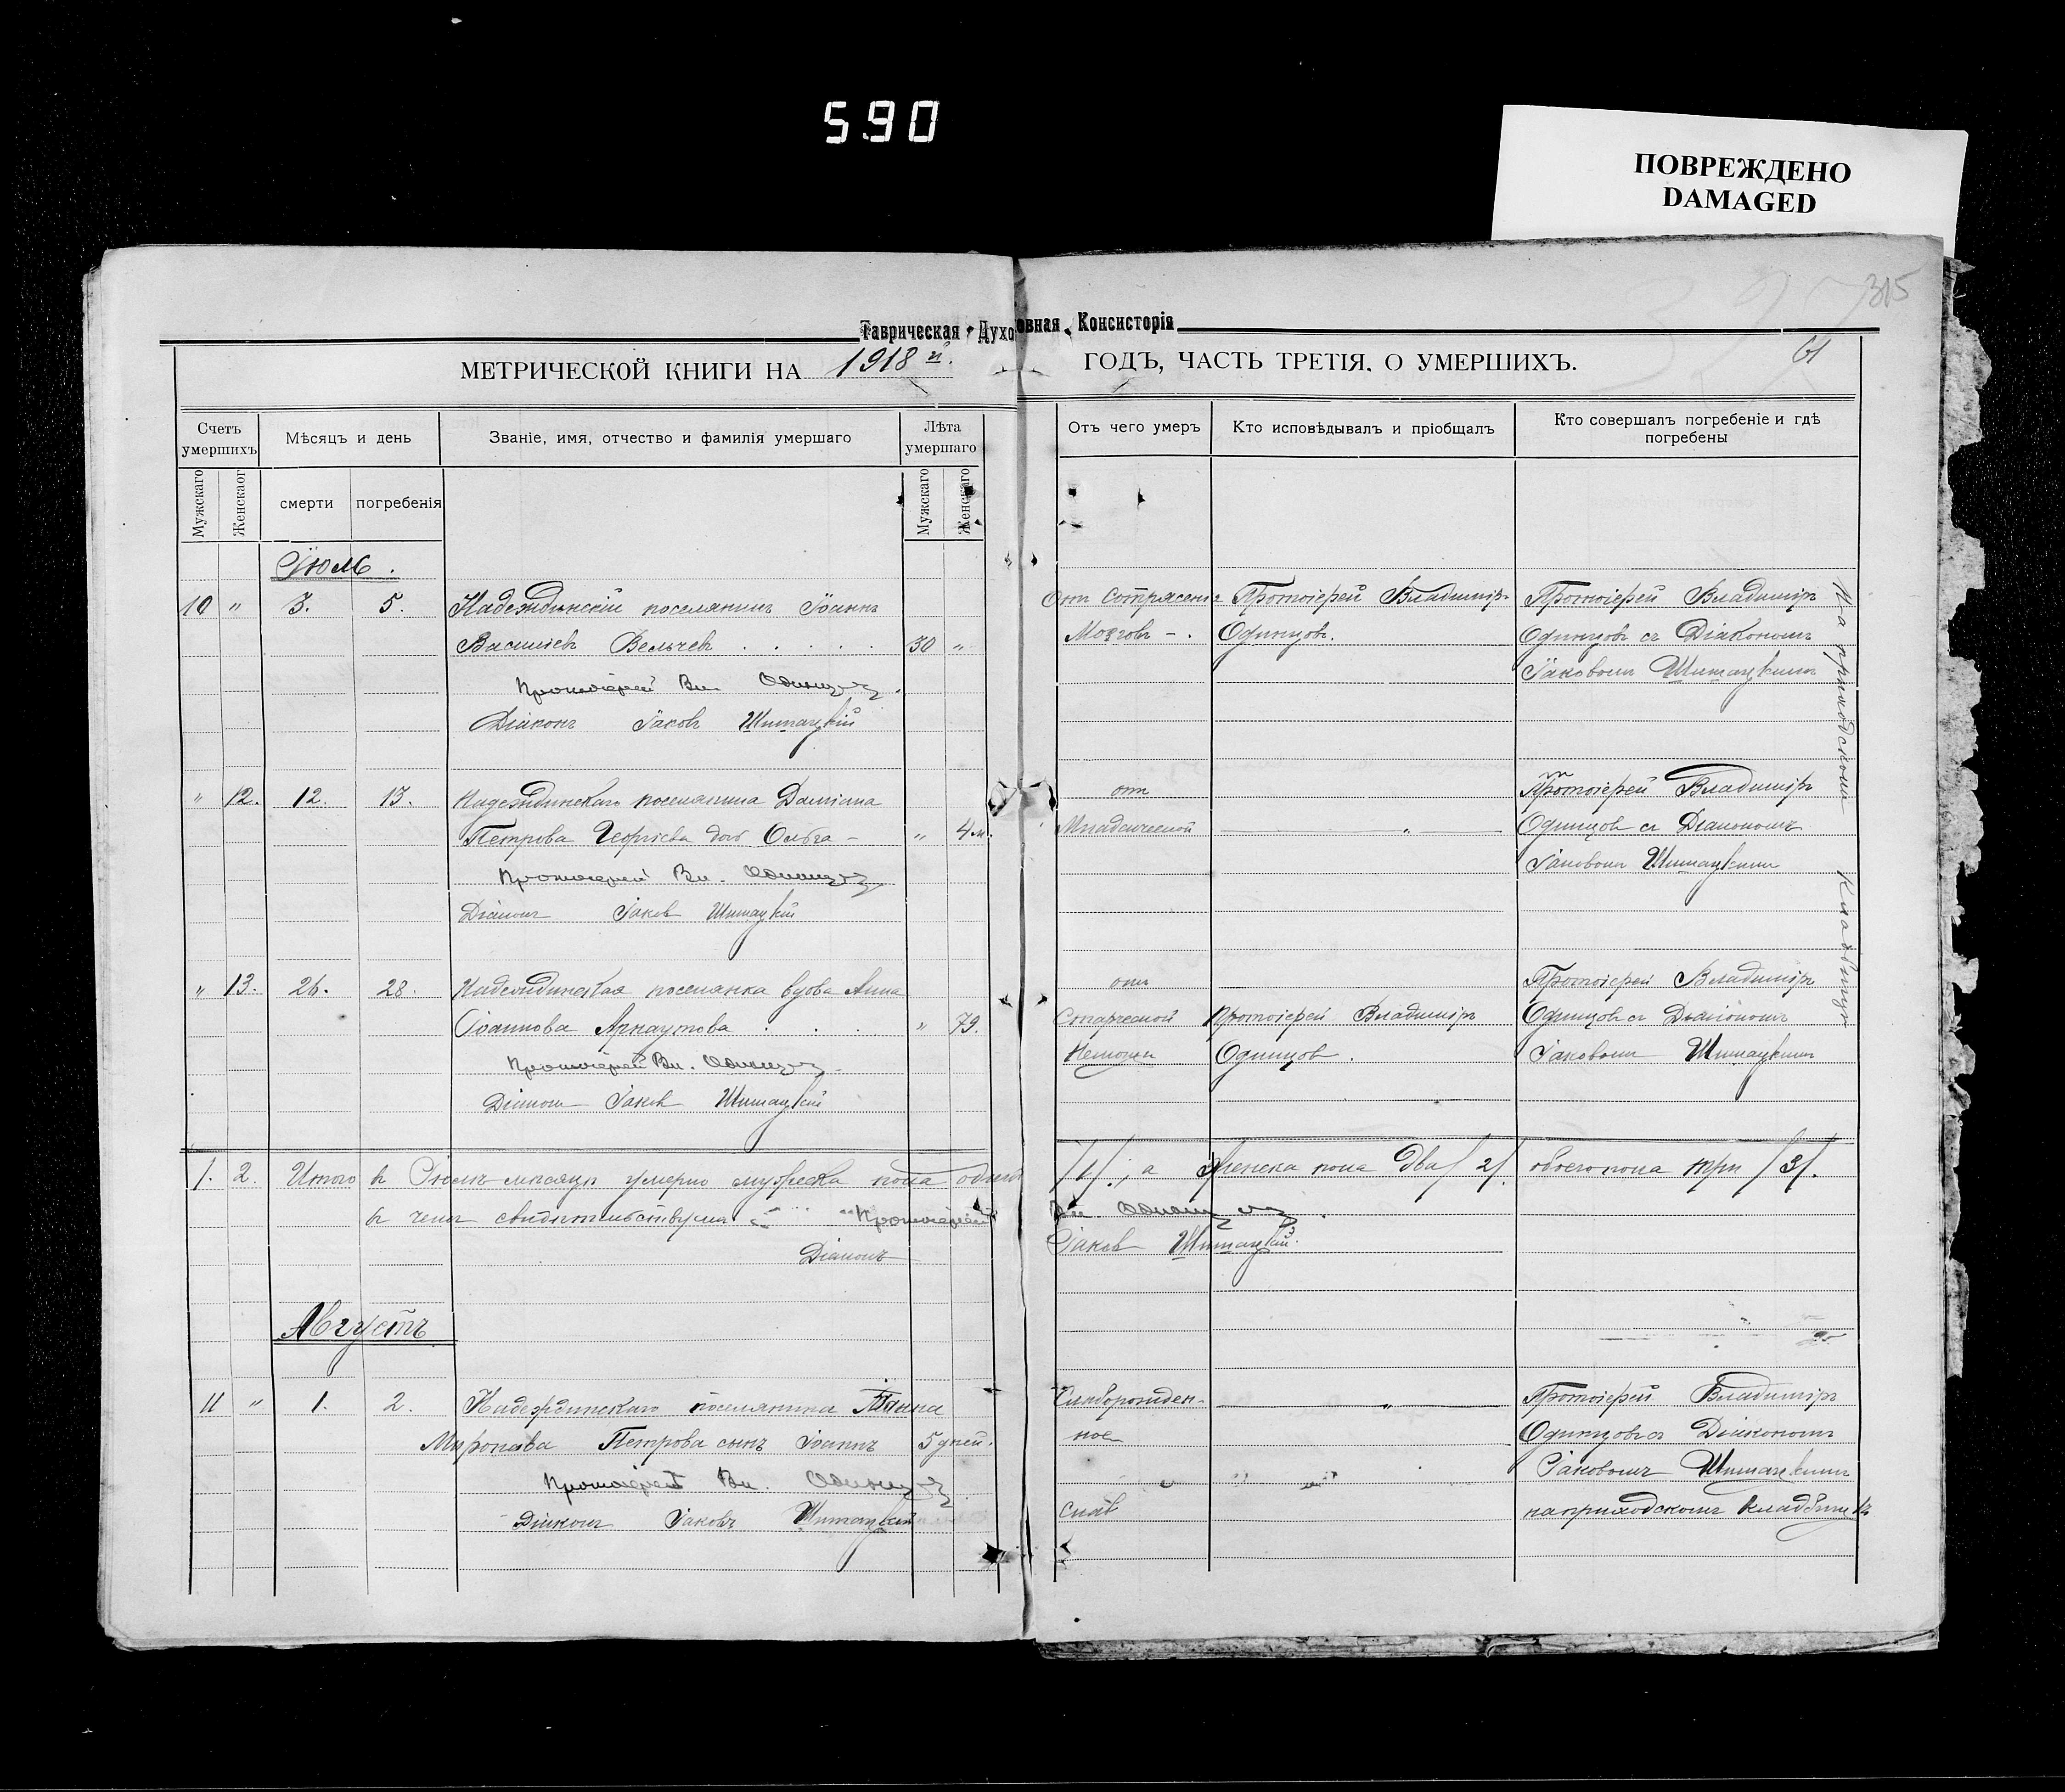 590
ПОВРЕЖДЕНО
DAMAGED
315
Таврическая Духовная Консисторія
61
МЕТРИЧЕСКОЙ КНИГИ НА 1918 й. ГОДЪ, ЧАСТЬ ТРЕТІЯ. О УМЕРШИХЪ.
Счетъ умершихъ
Мѣсяцъ и день
Званіе, имя, отчество и фамилія умершаго
Лѣта умершаго
Отъ чего умеръ
Кто исповѣдывалъ и пріобщалъ
Кто совершалъ погребеніе и гдѣ погребены
Мужскаго
Женскаог
смерти
погребенія
Мужскаго
Женскаго
Іюль.
10 " 3. 5. Надеждинскій поселянинъ Іоаннъ
Василіевъ Вельчевъ . . . . . 30 "
Протоіерей Вл. Одинцовъ.
Діаконъ Іаковъ Шитацкій
Отъ сотрясенія
Мозговъ - .
Протоіерей Владиміръ
Одинцовъ.
Протоіерей Владиміръ
Одинцовъ съ Діакономъ
Іаковомъ Шитацкимъ
На приходскомъ кладбищѣ
" 12. 12. 13. Надеждинскаго поселянина Даміана
Петрова Георгіева дочь Ольга - " 4 м.
Протоіерей Вл. Одинцовъ
Діаконъ Іаковъ Шитацкій
отъ
Младенческой
"
Протоіерей Владиміръ
Одинцовъ съ Діакономъ
Іаковомъ Шитацкимъ
" 13. 26. 28. Надеждинская поселянка вдова Анна
Іоаннова Арнаутова . . . " 79.
Протоіерей Вл. Одинцовъ
Діаконъ Іаковъ Шитацкій
отъ
Старческой
Немощи
Протоіерей Владиміръ
Одинцовъ.
Протоіерей Владиміръ
Одинцовъ съ Діакономъ
Іаковомъ Шитацкимъ
1. 2. Итого въ Іюлѣ мѣсяцѣ умерло мужеска пола одинъ /1/.; а женска пола два /2/. обоего пола три /3/.
въ чемъ свидѣтельствуемъ: Протоіерей Вл. Одинцовъ.
Діаконъ Іаковъ Шитацкій.
Августъ
11 " 1. 2. Надеждинскаго поселянина
Миронова Петрова сынъ Іоаннъ 5 дней.
Протоіерей Вл. Одинцовъ
Діаконъ Іаковъ Шитацкій
Слаборожден-
ное
слаб
"
Протоіерей Владиміръ
Одинцовъ съ Діакономъ
Іаковомъ Шитацкимъ
на приходскомъ кладбищѣ